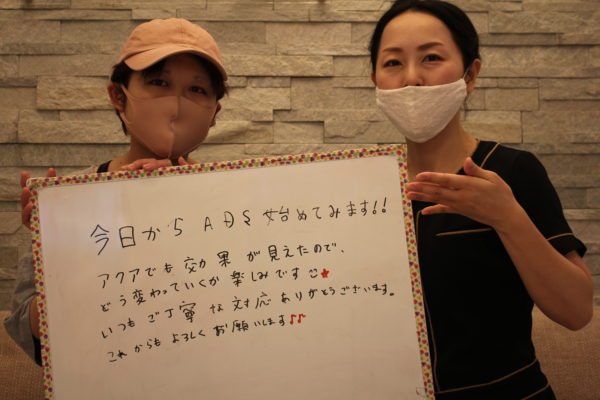 今日から ADS 始めてみます!!
アクアでも 効果 が 見えたので、
どう変わっていくか 楽しみです☺★
いつも ご丁寧 な 対応 ありがとうございます。
これからも よろしく お願いします♪♪